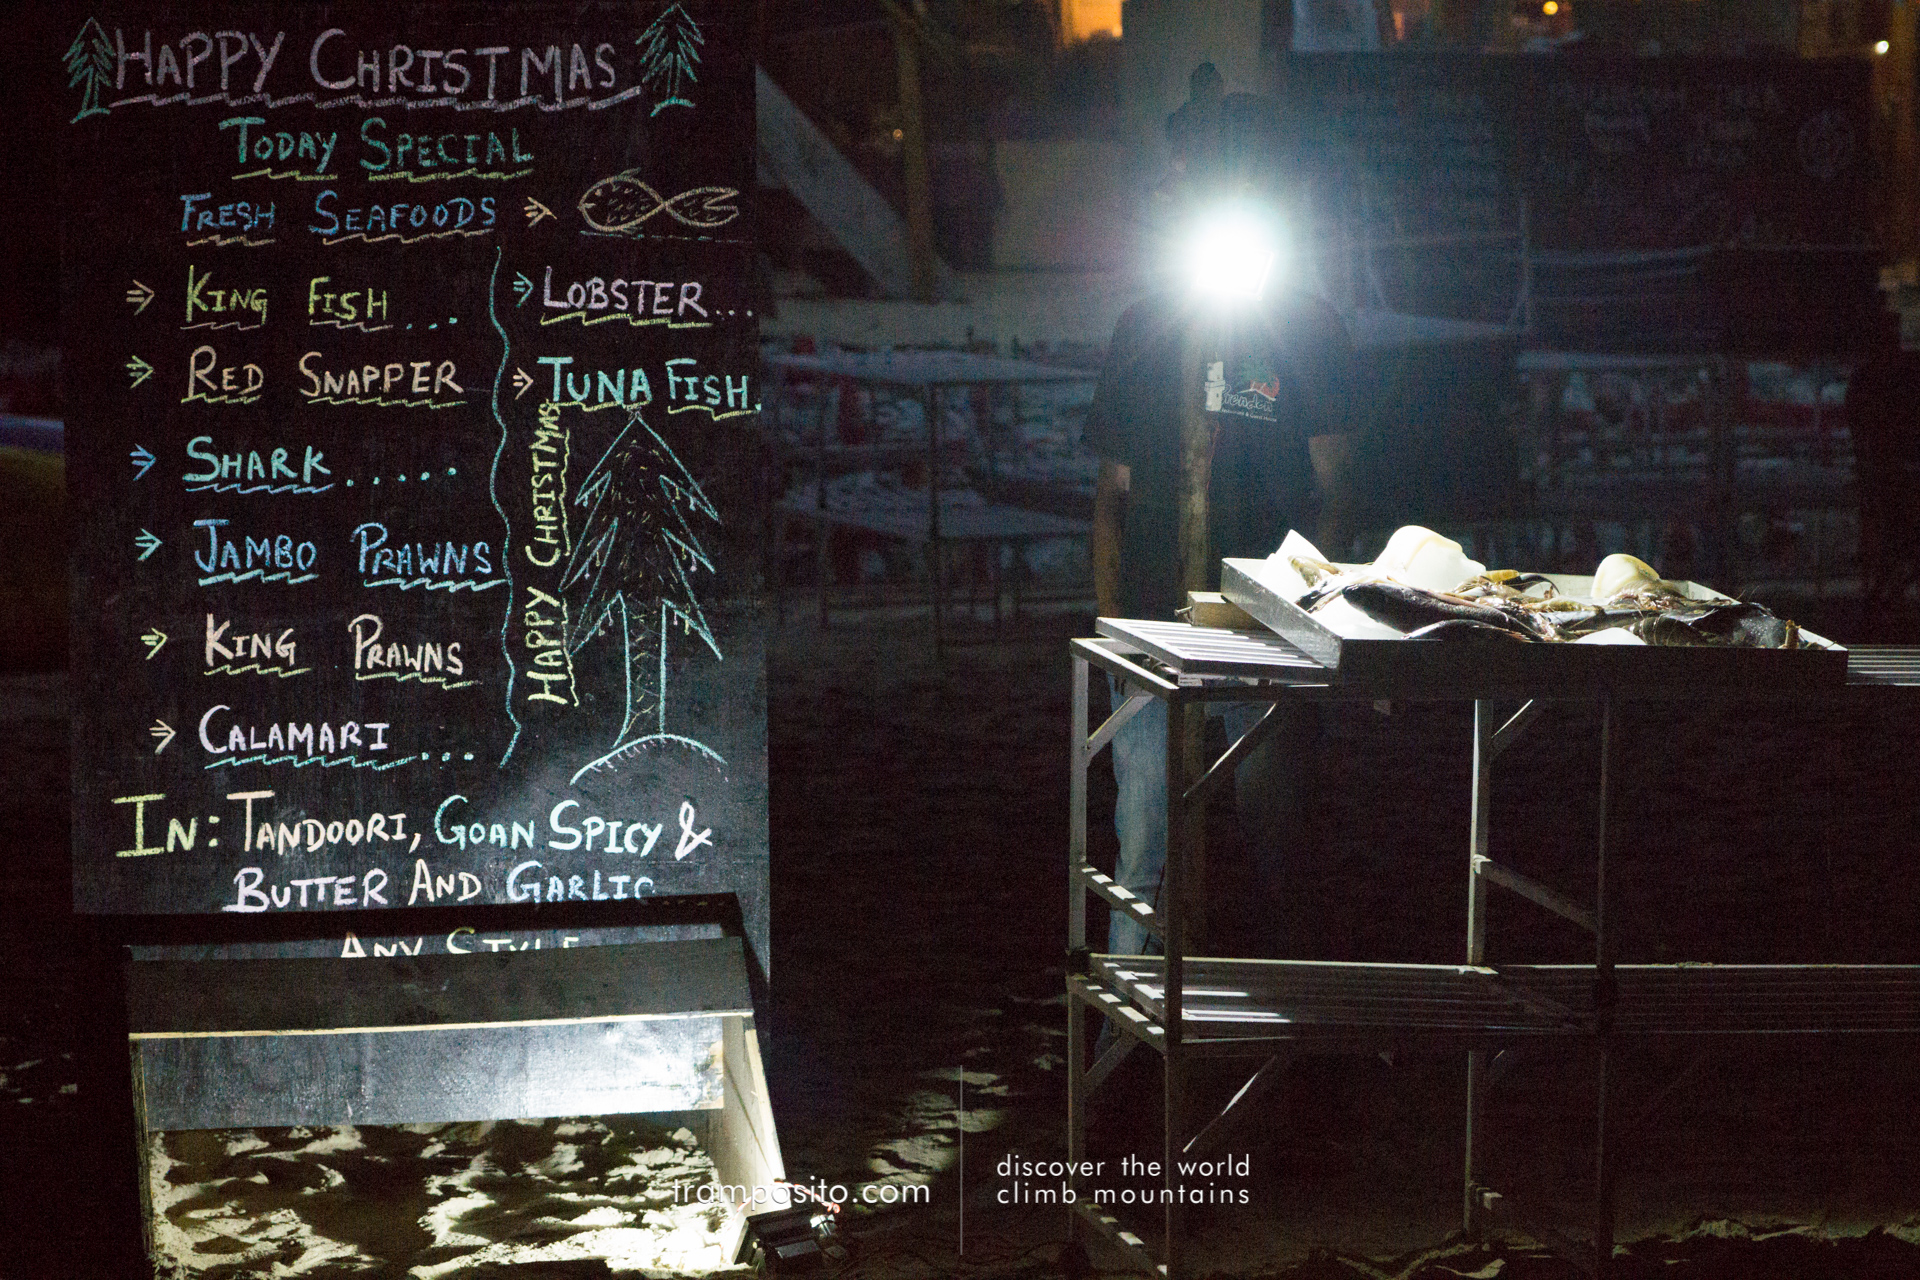 HAPPY CHRISTMAS
TODAY SPECIAL
FRESH SEAFOODS
KING FISH...
RED SNAPPER
SHARK.....
JAMBO PRAWNS
KING PRAWNS
CALAMARI...
LOBSTER...
TUNA FISH.
HAPPY CHRISTMAS
IN: TANDOORI, GOAN SPICY &
BUTTER AND GARLIC
ANY STYLE
tramposito.com
discover the world
climb mountains